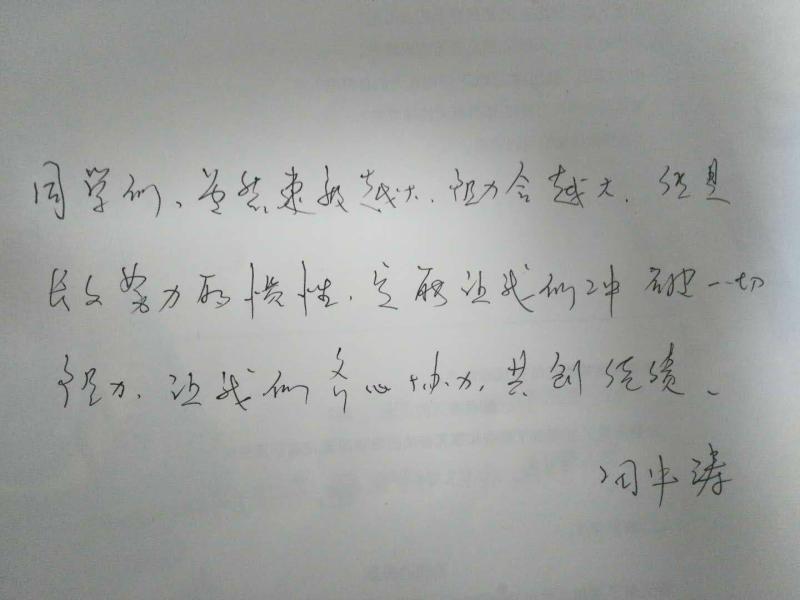 同学们、虽然速教越大、阻力会越大、但是
长久努力的惯性、定能让我们冲破一切
阻力、让我们齐心协力、共创佳绩、